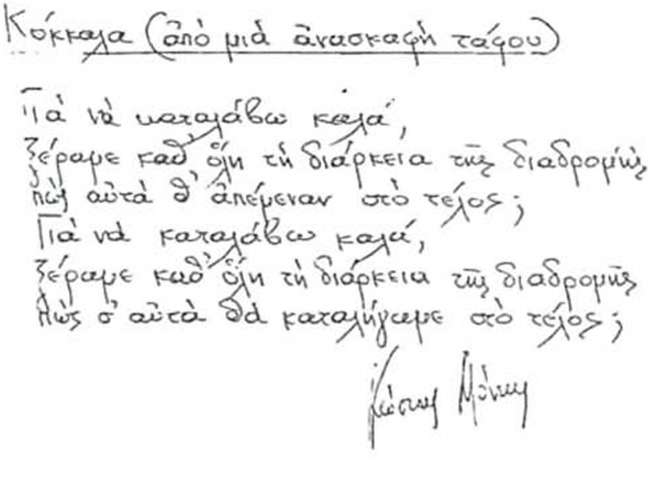 Κόκκαλα (ἀπό μιά ἀνασκαφή τάφου)
Γιά νά καταλάβω καλά,
ξέραμε καθ' ὅλη τή διάρκεια τῆς διαδρομῆς
πώς αὐτά θ' ἀπέμεναν στό τέλος;
Γιά νά καταλάβω καλά,
ξέραμε καθ' ὅλη τή διάρκεια τῆς διαδρομῆς
πώς σ' αὐτά θά καταλήγαμε στό τέλος;
Κώστας Μόντης